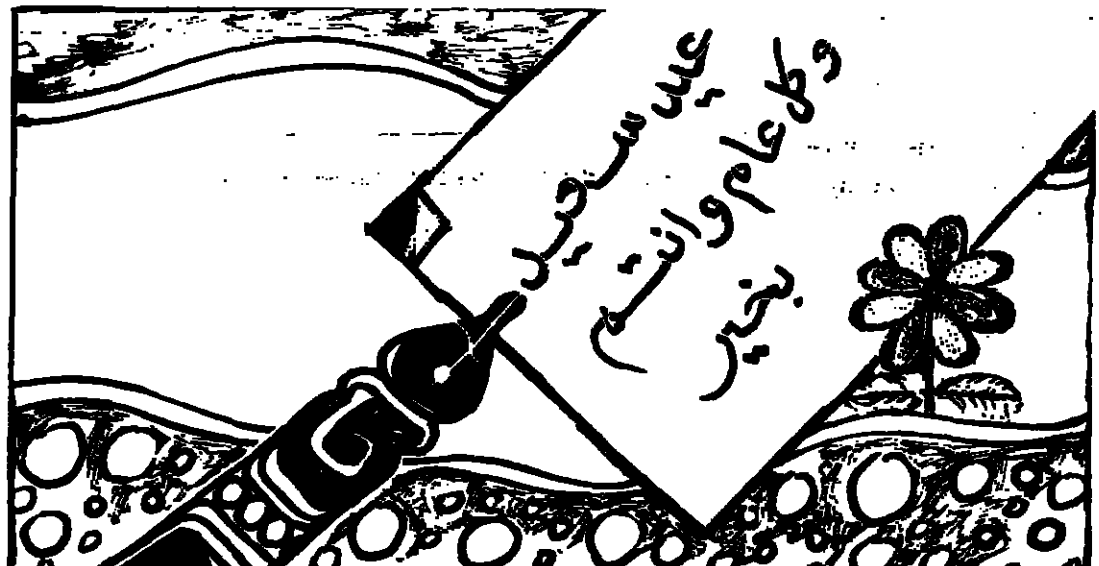 عيد سعيد
وكل عام وانتم
بخير